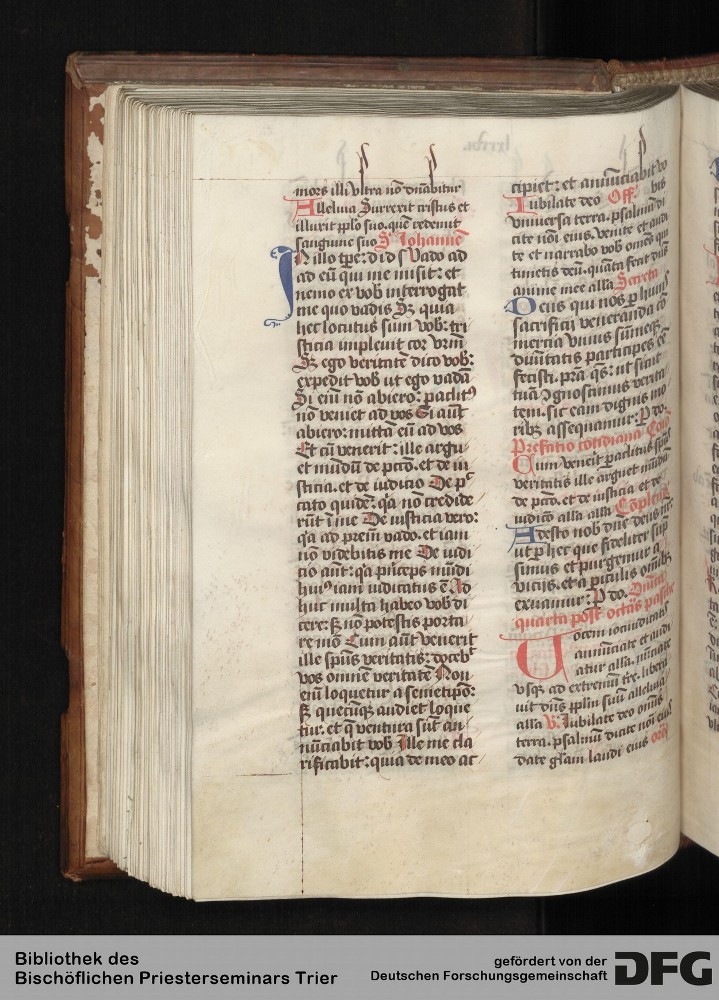 mors illi vltra nō dn̄abitur
Alleluia Surrexit cristus et
illuxit pplo suo. quē redemit
sanguine suo S. Iohannē
IN illo tp̄e: d. ih̄s d. s. Vado ad
ad eū qui me misit: et
nemo ex vob interrogat
me quo vadis Sz quia
hec locutus sum vob: tri
sticia impleuit cor vrm̄
Sz ego veritatē dico vob:
expedit vob ut ego vadā
Si em̄ nō abiero: paclitꝰ
nō veniet ad vos Si aūt
abiero: mittā eū ad vos
Et cū venerit: ille argu
et mūdū de pctō. et de iu
sticia. et de iudicio De pc̄
cato quidē: q̇a nō credide
rūt ī me De iusticia vero:
q̇a ad prēm vado. et iam
nō videbitis me De iudi
cio aūt: q̇a prīceps mūdi
huiꝰ iam iudicatus ē Ad
huc multa habeo vob di
cere: sꝫ nō potestis porta
re mō Cum aūt venerit
ille spūs veritatis: docebt
vos omnē veritatē Non
enī loquetur a semetipō:
sꝫ quecūqꝫ audiet loque
tur. et q̄ ventura sūt an
nūciabit vob Ille me cla
rificabit: quia de meo ac
cipiet: et anūūciabit vo
Iubilate deo Off. bis
vniuersa terra. psalmū di
cite noī eius. venite et audi
te et narrabo vob omēs qui
timetis deū. quāta fecit dūs
anime mee alla Secreta
Deus qui nos p huiꝰ
sacrificij veneranda cō
mercia vnius sūmeqꝫ
diuītatis participes eē
fecisti. prā qs: ut sicut
tuā Ignoscimus verita
tem. sic eam dignis mo
ribꝫ assequamur: P do.
Prefatio cotidiana Cōō
Cum venerit paclitus spūs
veritatis ille arguet mūdū
de pctō. et de iusticia et de
iudicō alla alla Cōplend
Adesto nob dne deus nr̄
ut p hec que fideliter sūp
simus et purgemur a
vicijs. et a piculis omībꝫ
exuamur: P do. Dnīca
quarta post octās pasche
Uocem iocunditatis
annūciate et audi
atur alla. nūciate
vsqꝫ ad extremū tre. libera
uit dūs pplm suū alleluia
alla V. Iubilate deo omīs
terra. psalmū dicite noī eius
date glam laudi eius
Bibliothek des
Bischöflichen Priesterseminars Trier
gefördert von der
Deutschen Forschungsgemeinschaft
DFG